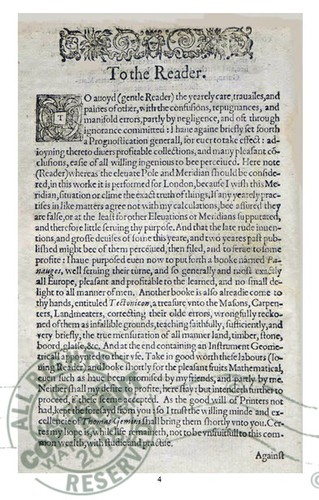 To the Reader.
TO auoyd (gentle Reader) the yearely care, trauailes, and
paines of other, with the confusions, repugnances, and
manifold errors, partly by negligence, and oft through
ignorance committed: I haue againe briefly set foorth
a Prognostication generall, for euer to take effect: ad-
ioyning thereto diuers profitable collections, and many pleasant cō-
clusions, ease of all willing ingenious to bee perceiued. Here note
(Reader) whereas the eleuate Pole and Meridian should be conside-
red, in this worke it is performed for London, because I wish this Me-
ridian, situation or clime the exact truth of things, If any yearely practi-
ses in like matters agree not with my calculations, bee assured they
are false, or at the least for other Eleuations or Meridians supputated,
and therfore little seruing thy purpose. And that the late rude inuen-
tions, and grosse deuises of some this yeare, and two yeares past pub-
lished might bee of them perceiued, then filed, and to serue to some
profite: I haue purposed euen now to put forth a booke named Pa-
nauges, well seruing their turne, and so generally and most exactly
all Europe, pleasant and profitable to the learned, and no small de-
light to all manner of men. Another booke is also alreadie come to
thy hands, entituled Tectonicon, a treasure vnto the Masons, Carpen-
ters, Landmeaters, correcting their olde errors, wrongfully recko-
ned of them as infallible grounds, teaching faithfully, sufficiently, and
very briefly, the true mensuration of all manner land, timber, stone,
boord, glasse, &c. And at the end containing an Instrument Geome-
tricall applied to their vse. Take in good worth these labours (lo-
uing Reader) and looke shortly for the pleasant fruits Mathematical,
euen such as haue been promised by my friends, and partly by me.
Neither shall my practise to profite, here stay: but intendeth further to
proceed, if these seeme accepted. As the good will of Printers not
had, kept the foresayd from you: so I trust the willing minde and ex-
cellencie of Thomas Gemini shall bring them shortly vnto you. Cer-
tes my hope is, while life remaineth, not to be vnfruitfull to this com-
mon wealth, with studie and practise.
Against
4
ALL
RESERVE
©